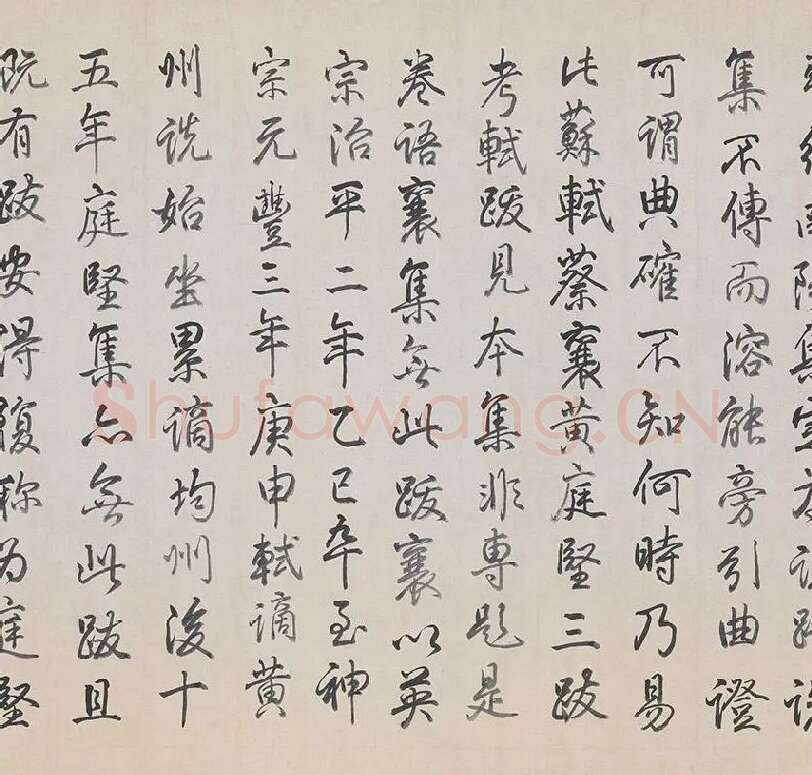 集室友诸跋语
集不傳而溶能旁引曲證
可謂典確不知何時乃易
此蘇軾蔡襄黄庭堅三跋
考軾跋見本集非專題是
卷语襄集無此跋襄以英
宗治平二年乙巳卒至神
宗元豐三年庚申軾謫黄
州詵始坐累謫均州後十
五年庭堅集亦無此跋且
既有跋安得複称为庭堅
Shufawang.CN